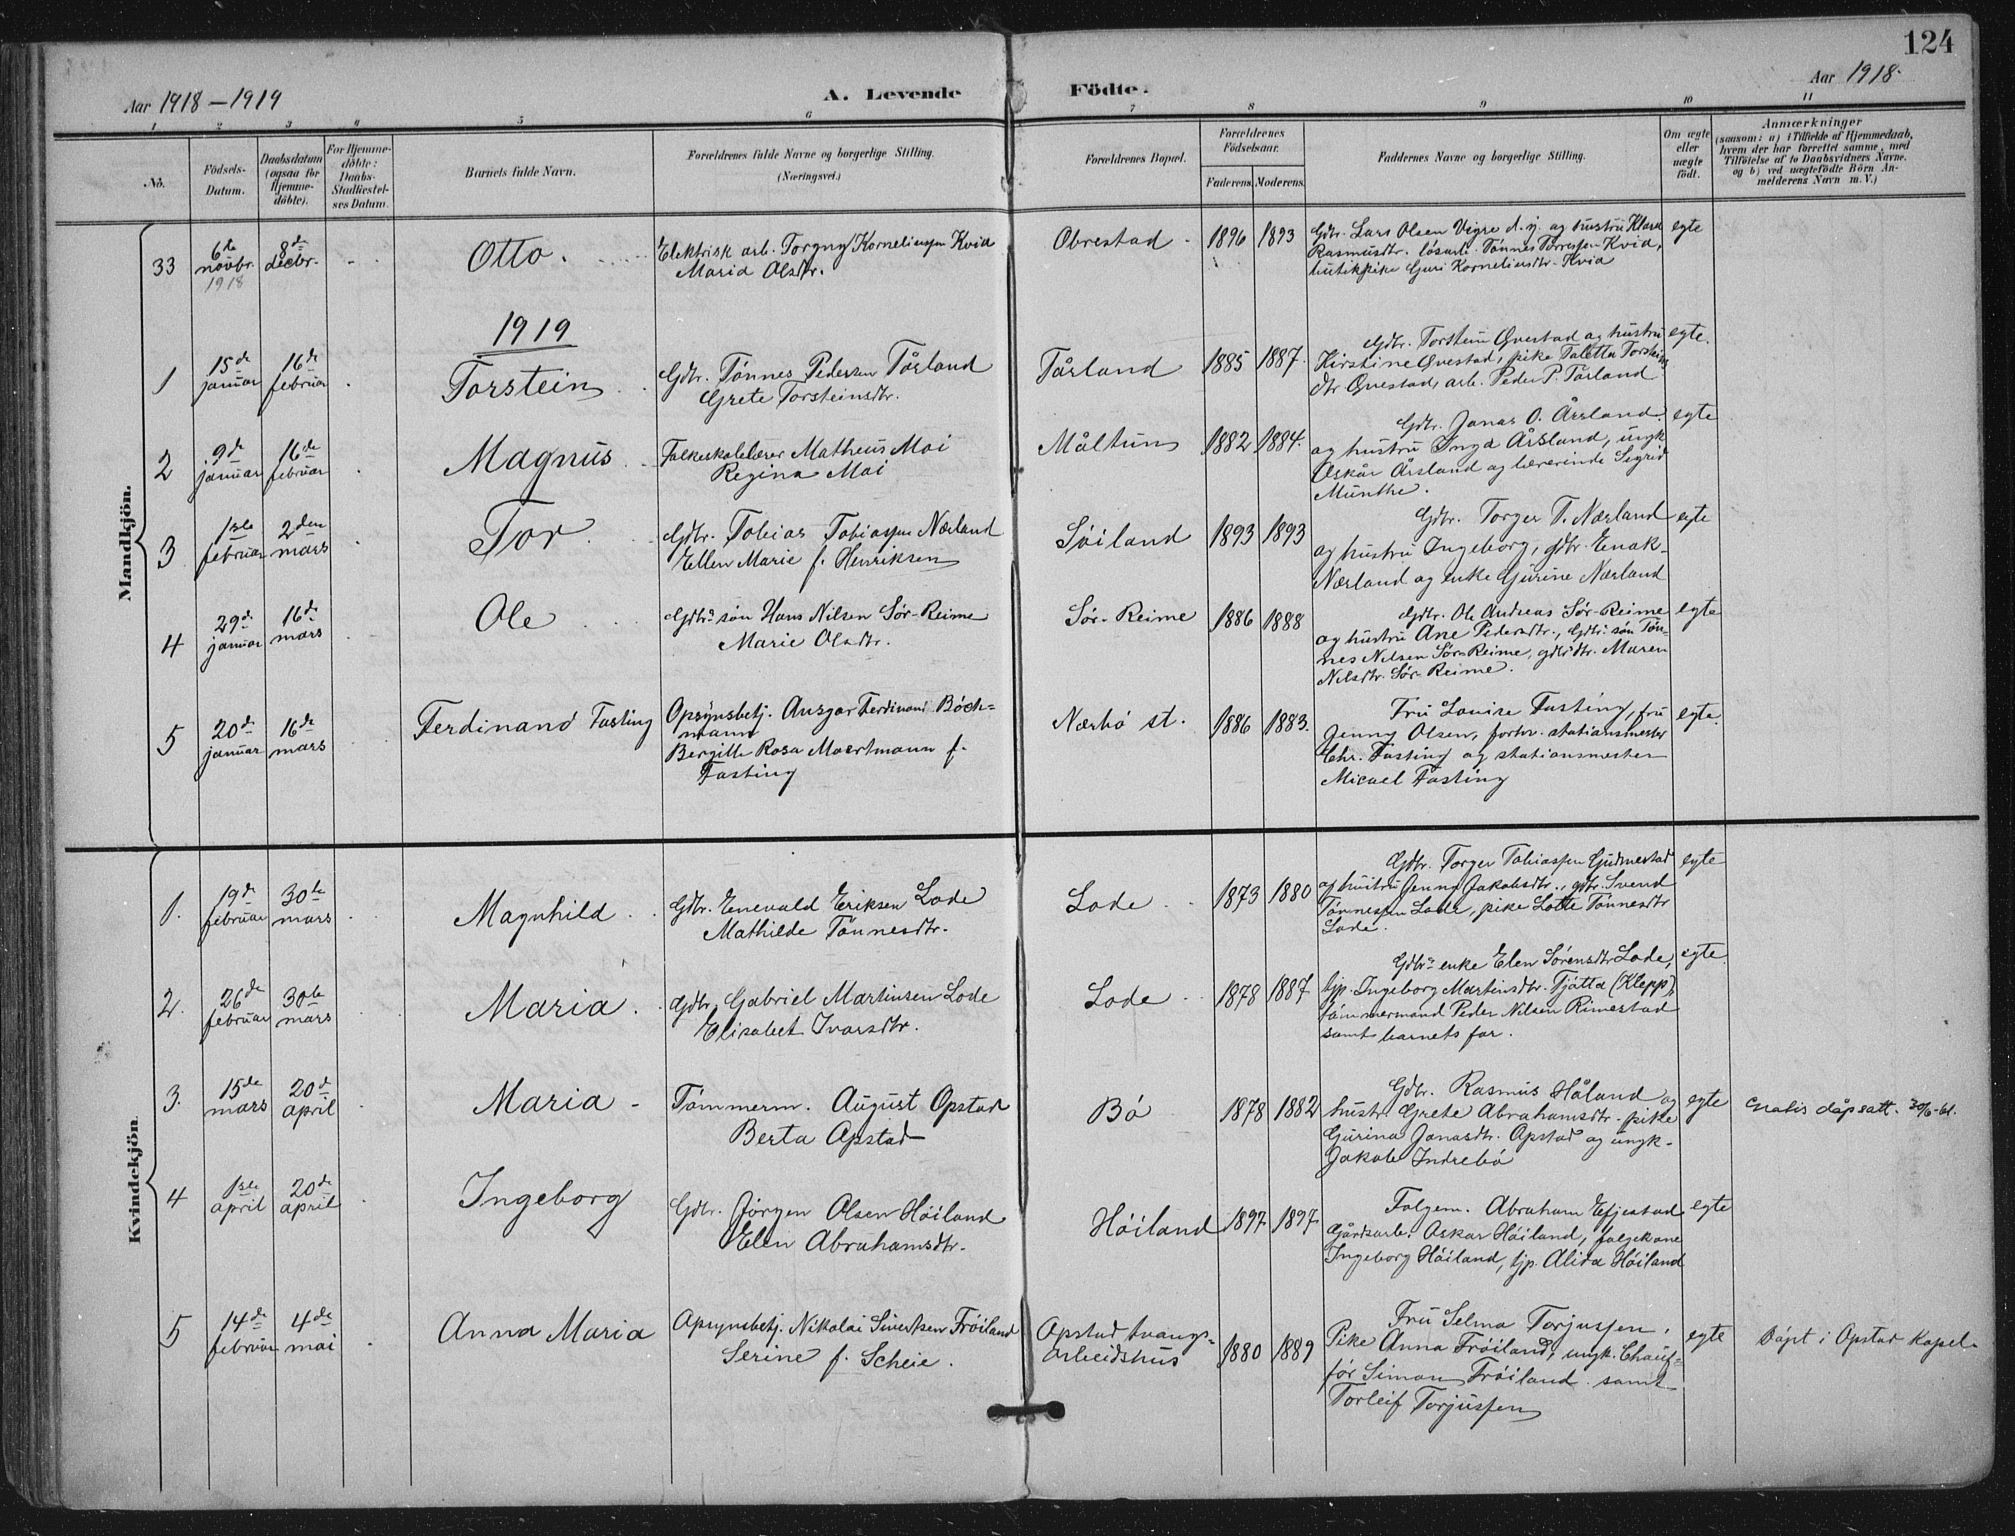 124
Aar 1918-1919
A. Levende
Födte.
Aar 1918.
1 2 3 4 5 6 7 8 9 10 11
No.
Födsels-
Datum.
Daabsdatum
(ogsaa for
Hjemme-
döbte).
For Hjemme-
döbte:
Daabs-
Stadfæstel-
ses Datum.
Barnets fulde Navn.
Forældrenes fulde Navne og borgerlige Stilling.
(Næringsvei.)
Forældrenes Bopæl.
Forældrenes
Födselsaar.
Faderens. Moderens.
Faddernes Navne og borgerlige Stilling.
Om ægte
eller
uægte
födt.
Anmærkninger
(saasom: a) i Tilfælde af Hjemmedaab,
hvem der har forrettet samme, med
Tilföielse af to Daabsvidners Navne.
og b) ved uægtefödte Börn An-
melderens Navn m. V.)
Mandkjön.
33
6te
novbr.
1918
8de
decbr.
Otto.
Elektrisk arb. Torgny Korneliussen Kvia
Maria Olsdtr.
Obrestad
1896 1893
Gdbr. Lars Olsen Vigre d.y. og hustru Klara
Rasmusdtr. løsarb. Tønnes Torressen Kvia,
butikkpike Guri Korneliusdtr. Kvia
egte
1919
1
15de
januar
16de
februar
Torstein
Gdbr. Tönnes Pedersen Tårland
Grete Torsteinsdtr.
Tårland
1885 1887.
Gdbr. Torstein Qvestad og hustru
Kirstine Qvestad, pike Taletta Torsteins
dtr Qvestad, arb. Peder P. Tårland
egte.
2
9de
januar
16de
februar
Magnus
Folkeskolelærer Matheus Moi
Regina Moi
Måltun
1882 1884.
Gdbr. Jonas O. Årsland
og hustru Inga Årsland, ungk.
Oskar Årsland og lærerinde Sigrid
Munthe.
egte
3
1ste
februar
2den
mars
Tor
Gdbr. Tobias Tobiassen Nærland
Ellen Marie f. Henriksen
Söiland
1893 1893
Gdbr. Torger T. Nærland
og hustru Ingeborg, gdbr. Enok
Nærland og enke Gurine Nærland
egte
4
29de
januar
16de
mars
Ole
Gdbrs søn Hans Nilsen Sør-Reime
Marie Olsdtr.
Sør-Reime
1886 1888
Gdbr. Ole Andreas Sør-Reime
og hustru Ane Pedersdtr., Gdbrs søn Tøn-
nes Nilsen Sør-Reime, gdbrdtr. Maren
Nilsdtr. Sør-Reime.
egte
5
20de
januar
16de
mars
Ferdinand Fasting
Opsynsbetj. Ansgar Ferdinand Bóch-
mann
Bergitte Rosa Moertmann f.
Fasting
Nærbö st.
1886 1883.
Fru Louise Fasting, fru
Jenny Olsen, forhv. stationsmester
Chr. Fasting og stationsmester
Micael Fasting
egte.
Kvindekjön.
1.
19de
februar
30te
mars
Magnhild
Gdbr. Enevald Eriksen Lode
Mathilde Tönnesdtr.
Lode
1873 1880
Gdbr. Torger Tobiassen Gudmestad
og hustru Jenny Jakobsdtr., gdbr. Svend
Tönnessen Lode, pike Lotte Tönnesdtr
Lode.
egte
2.
26de
februar
30te
mars
Maria.
Gdbr. Gabriel Martinsen Lode
Elisabet Ivarsdtr.
Lode
1878 1887
Gdbrs enke Elen Sørensdtr Lode,
tjp. Ingeborg Martinsdtr. Tjøtta (Klepp)
tömmermand Peder Nilsen Rimestad
samt barnets far.
egte
3.
15de
mars
20de
april
Maria
Tömmerm. August Opstad
Berta Opstad
Bö
1878 1882
Gdbr. Rasmus Håland og
hustr. Grete Abrahamsdtr. pike
Gurina Jonasdtr. Opstad og ungk.
Jakob Indrebö
egte
Gratis dåpsatt. 30/6-61.
4
1ste
april
20de
april
Ingeborg
Gdbr. Jörgen Olsen Höiland
Elen Abrahamsdtr.
Höiland
1897 1897
Folgem. Abraham Efjestad
Gårdsarb. Oskar Höiland, folgekone
Ingeborg Höiland, tjp. Alida Höiland
egte
5
14de
februar
4de
mai
Anna Maria
Opsynsbetj. Nikolai Sivertsen Fröiland
Serine f. Scheie.
Opstad tvangs-
arbeidshus
1880 1889
Fru Selma Torjussen,
Pike Anna Fröiland, ungk. Chauf-
för Simon Fröiland samt
Torleif Torjussen
egte
Döpt i Opstad Kapel.